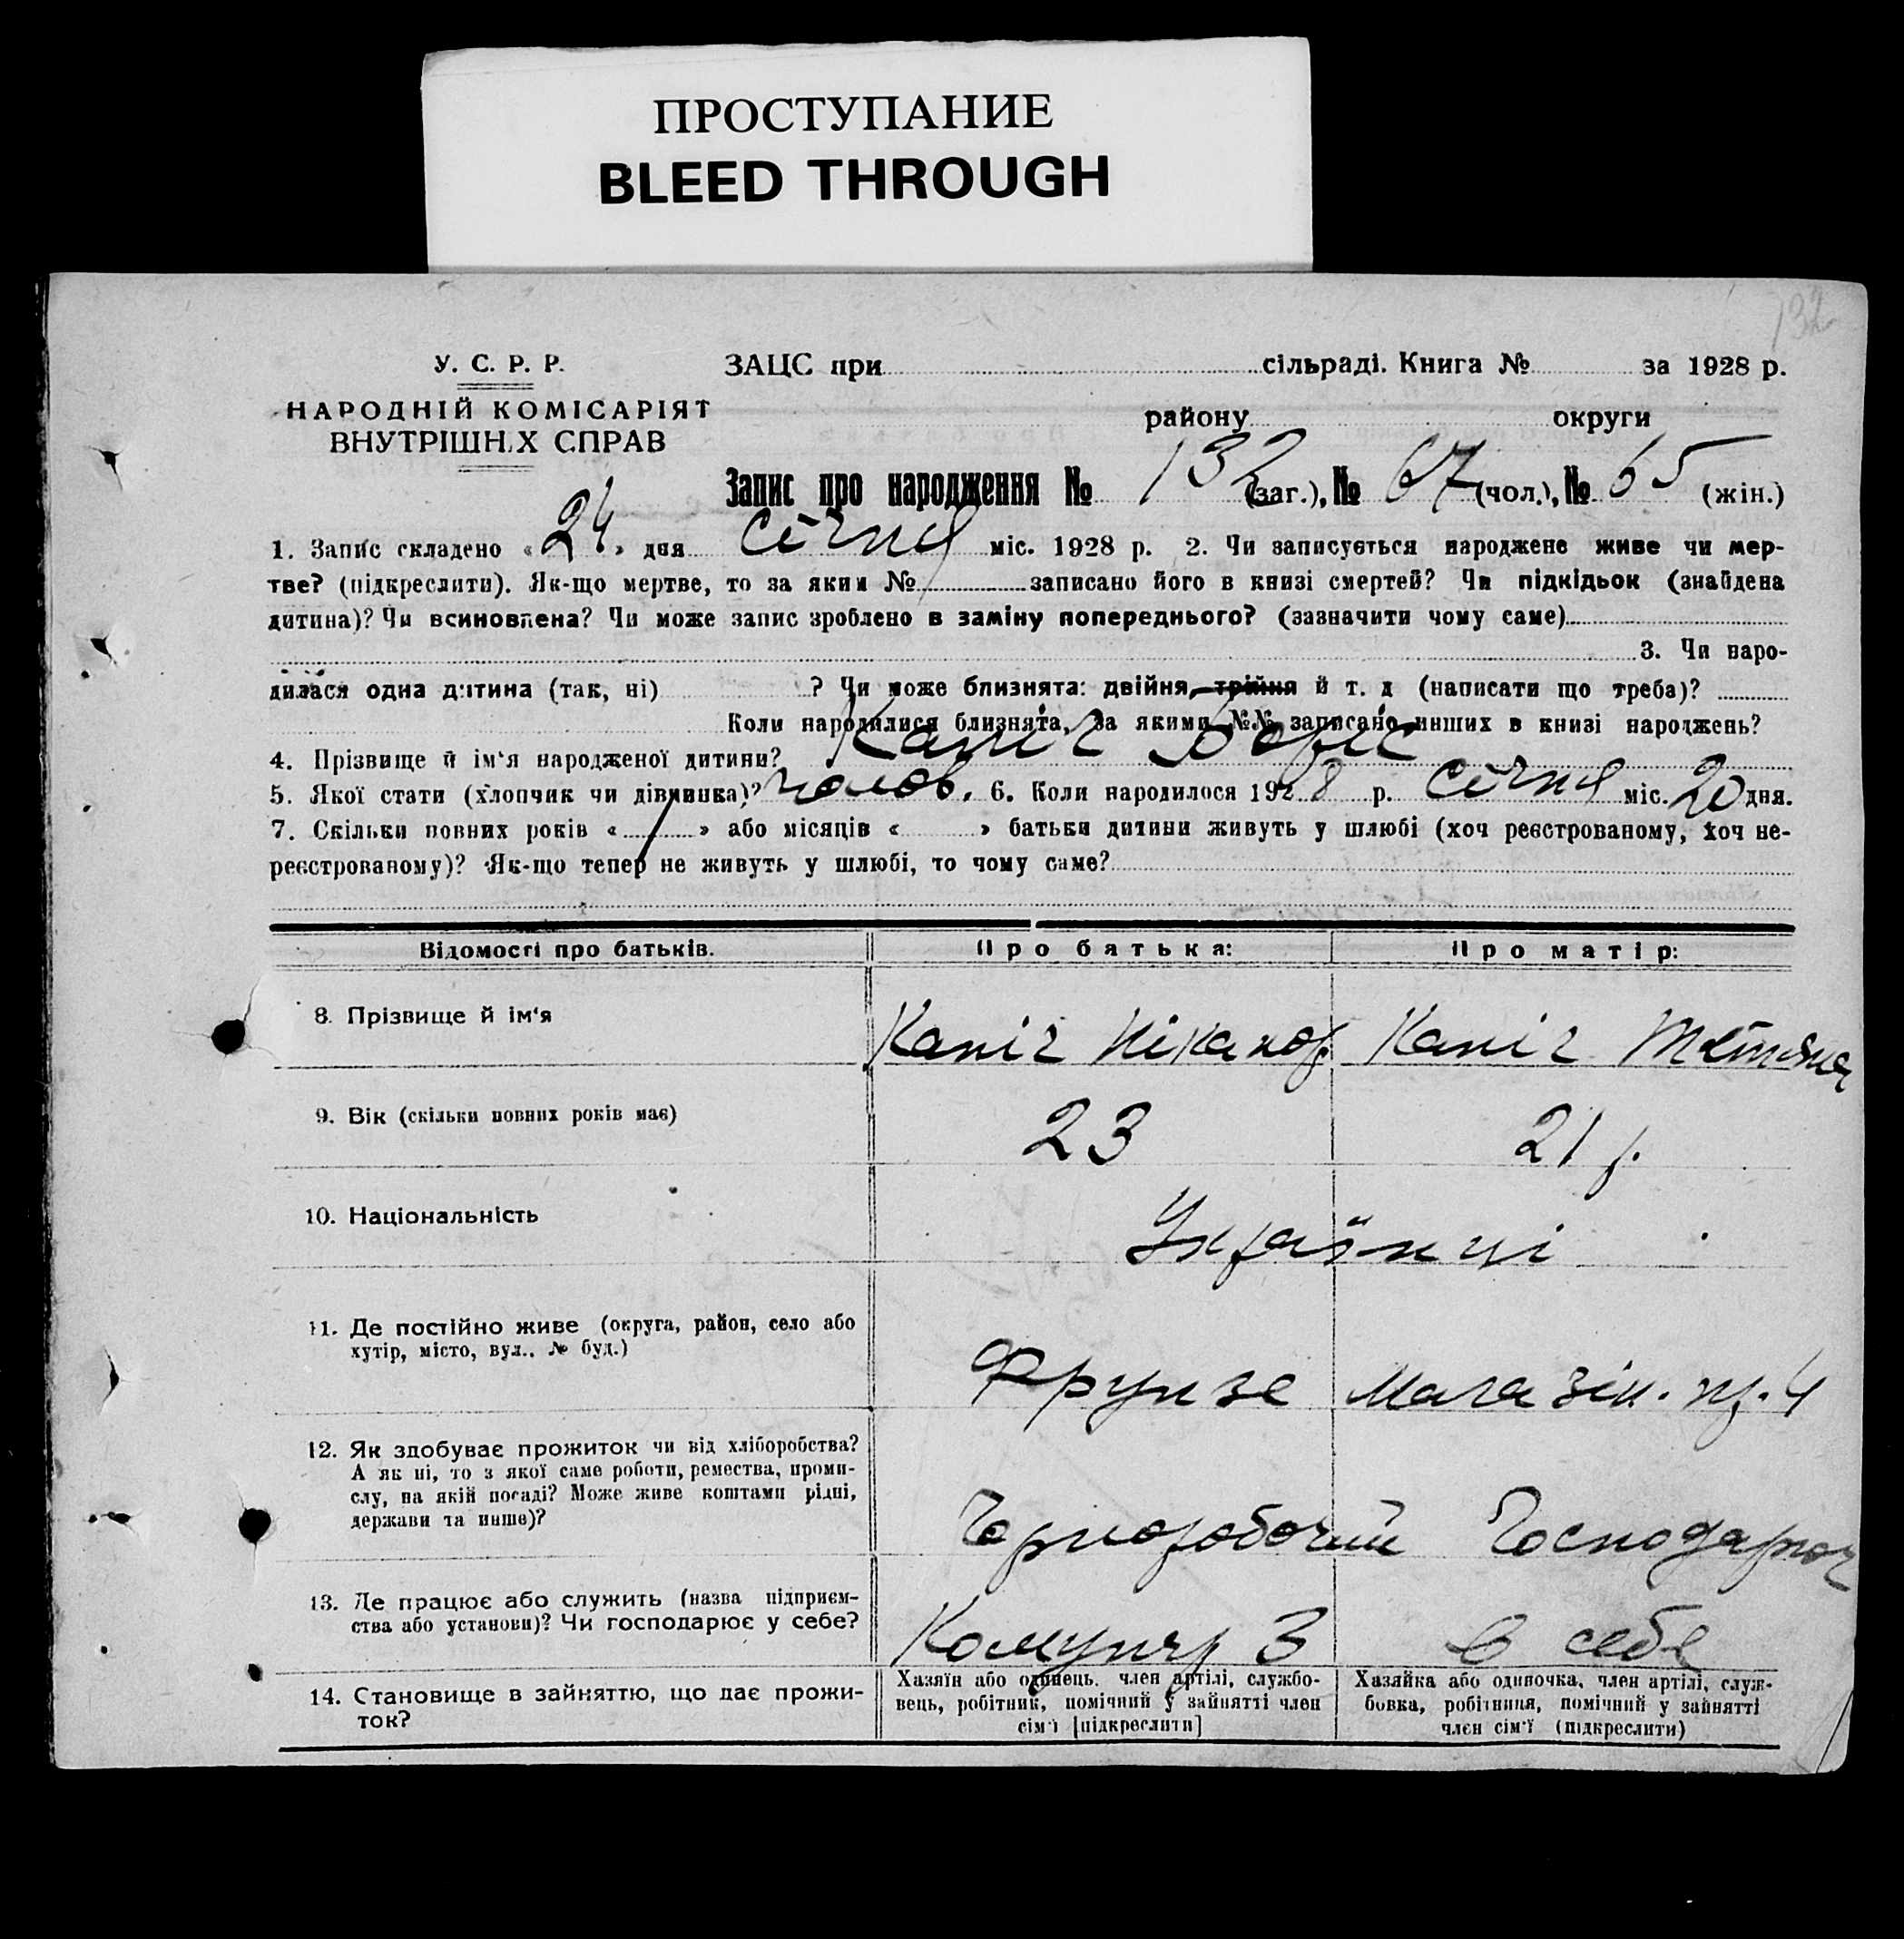 ПРОСТУПАНИЕ
BLEED THROUGH
132
У. С. Р. Р.
НАРОДНІЙ КОМІСАРІЯТ
ВНУТРІШНІХ СПРАВ
ЗАЦС при сільраді. Книга № за 1928 р.
району округи
Запис про народження № 132 (заг.), № 67 (чол.), № 65 (жін.)
1. Запис складено «24» дня січня міс. 1928 р. 2. Чи записується народжене живе чи мер-
тве? (підкреслити). Як-що мертве, то за яким № записано його в книзі смертей? Чи підкідьок (знайдена
дитина)? Чи всиновлена? Чи може запис зроблено в заміну попереднього? (зазначити чому саме)
3. Чи наро-
дилася одна дитина (так, ні) ? Чи може близнята: двійня, трійня й т. д (написати що треба)?
Коли народилися близнята, за якими №№ записано инших в книзі народжень?
4. Прізвище й ім‘я народженої дитини? Капіг Боріс
5. Якої стати (хлопчик чи дівчинка)? чолов. 6. Коли народилося 1928 р. січня міс. 20 дня.
7. Скільки повних років «1» або місяців « » батьки дитини живуть у шлюбі (хоч реєстрованому, хоч не-
реєстрованому)? Як-що тепер не живуть у шлюбі, то чому саме?
Відомості про батьків. Про батька: Про матір:
8. Прізвище й ім‘я Капіг Ніканор Капіг Тетяна
9. Вік (скільки повних років має) 23 21 р.
10. Національність Українці
11. Де постійно живе (округа, район, село або
хутір, місто, вул., № буд.) Фрунзе магазін. пр. 4
12. Як здобуває прожиток чи від хліборобства?
А як ні, то з якої саме роботи, ремества, проми-
слу, на якій посаді? Може живе коштами рідні,
держави та инше)? Чорноробочий Господарює
13. Де працює або служить (назва підприєм-
ства або установи)? Чи господарює у себе? Комунгр 3 в себе
14. Становище в зайняттю, що дає прожи-
ток?
Хазяїн або одинець, член артілі, службо-
вець, робітник, помічний у зайнятті член
сім‘ї [підкреслити]
Хазяйка або одиночка, член артілі, служ-
бовка, робітниця, помічний у зайнятті
член сім‘ї (підкреслити)